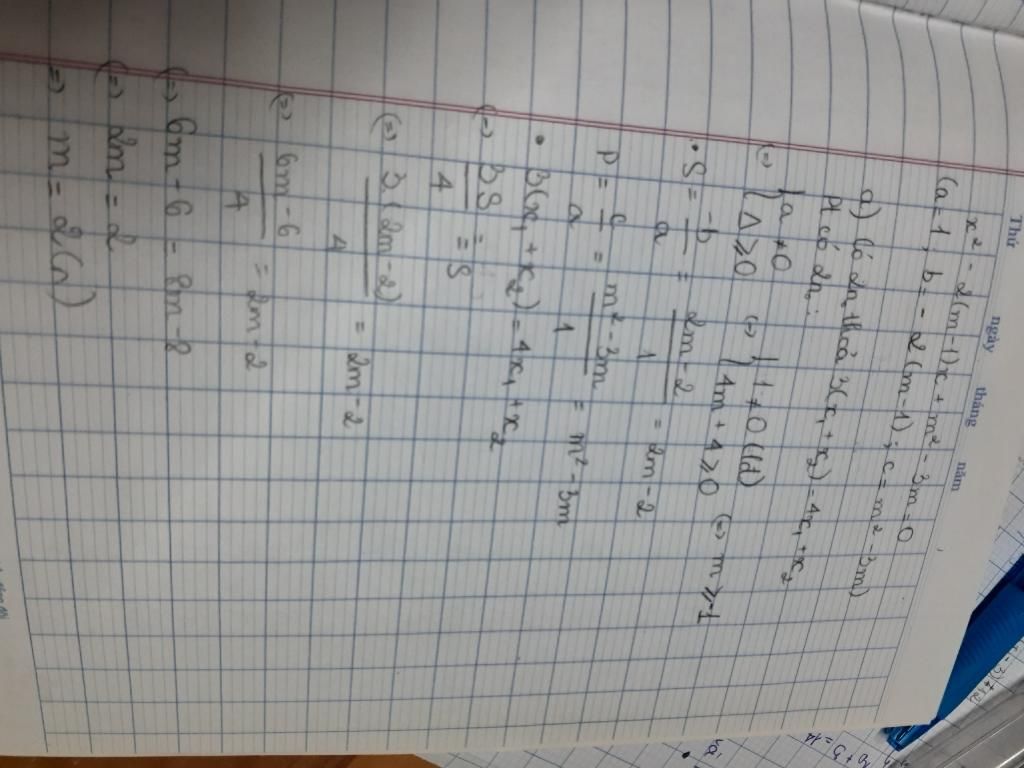 Thứ ngày tháng năm
x² - 2(m-1)x + m² - 3m = 0
(a = 1, b = - 2(m-1); c = m² - 3m)
a) Có 2n thoả 3(x₁ + x₂) = 4x₁ + x₂
Pt có 2n:
(=) { a ≠ 0 (=) { 1 ≠ 0 (lđ)
{ Δ ≥ 0 { 4m + 4 ≥ 0 (=) m ≥ -1
• S = -b/a = 2m-2/1 = 2m - 2
P = c/a = m² - 3m/1 = m² - 3m
• 3(x₁ + x₂) = 4x₁ + x₂
(=) 3S/4 = S
(=) 3(2m-2)/4 = 2m - 2
(=) 6m - 6/4 = 2m - 2
(=) 6m - 6 = 8m - 8
(=) 2m = 2
=) m = 2(n)